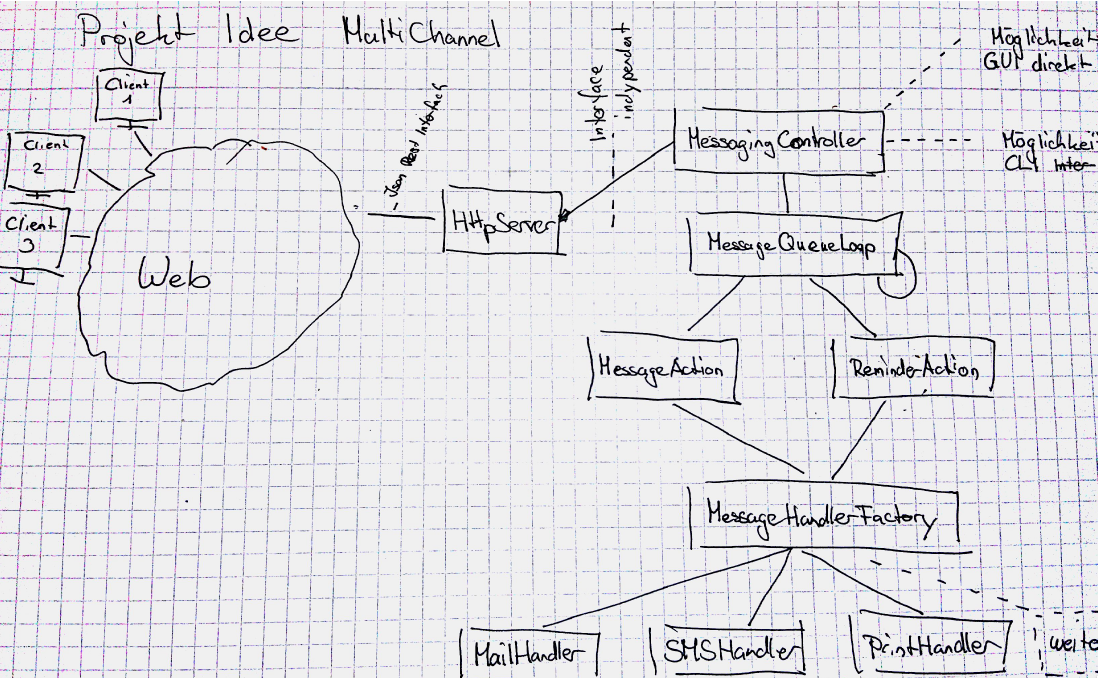 Projekt Idee MultiChannel
Client
1
Client
2
Client
3
Web
Json Rest Interfach
HttpServer
Interface
indypendent
Möglichkeit
GUI direkt
MessagingController
Möglichkeit
CLI Inter
MessageQueueLoop
MessageAction
ReminderAction
MessageHandlerFactory
MailHandler
SMSHandler
PrintHandler
weite